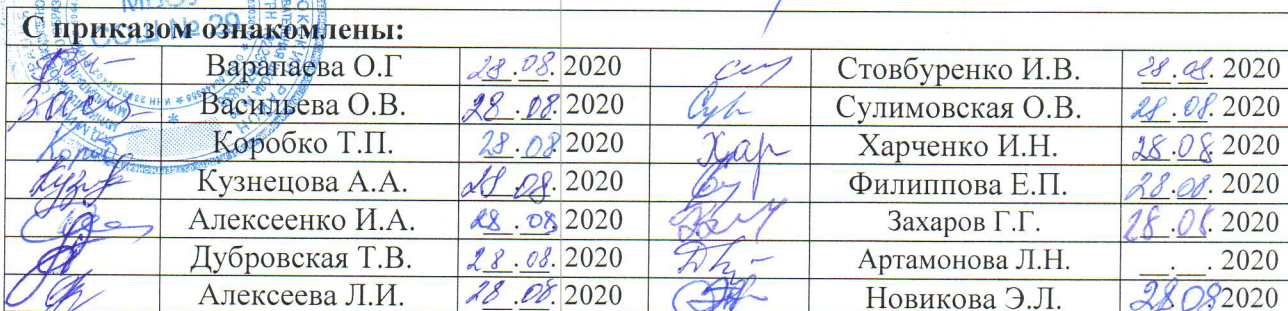 МБОУ
СОШ № 29
С приказом ознакомлены:
Варапаева О.Г 28.08.2020 Стовбуренко И.В. 28.08.2020
Васильева О.В. 28.08.2020 Сулимовская О.В. 28.08.2020
Коробко Т.П. 28.08.2020 Хар Харченко И.Н. 28.08.2020
Кузнецова А.А. 28.08.2020 Филиппова Е.П. 28.08.2020
Алексеенко И.А. 28.08.2020 Захаров Г.Г. 28.08.2020
Дубровская Т.В. 28.08.2020 Артамонова Л.Н. __.__.2020
Алексеева Л.И. 28.08.2020 Новикова Э.Л. 28.08.2020